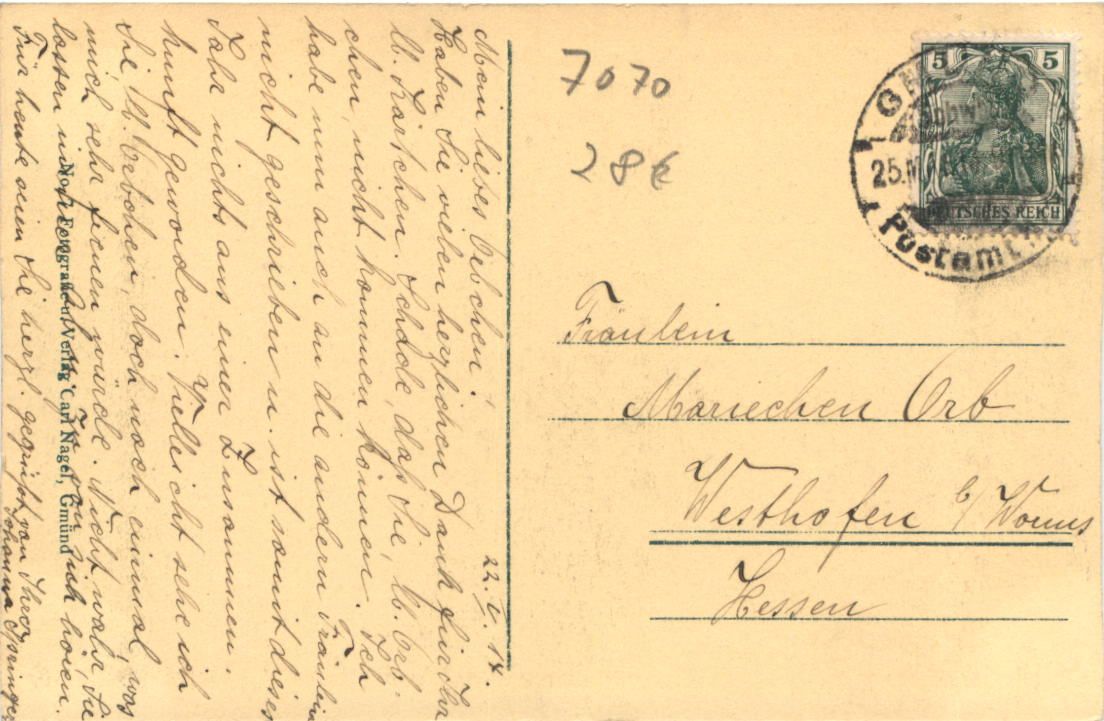 22. V. 14.
Mein liebes Orbchen!
Haben Sie vielen herzlichen Dank für Ihr
lb. Kärtchen. Schade, daß Sie, lb. Orb-
chen, nicht kommen können. Ich
habe nun auch an die andern Fräulein
nicht geschrieben u. ist somit dieses
Jahr nichts aus einer Zusammen-
kunft geworden. Vielleicht sehe ich
Sie lb. Orbchen, doch noch einmal, was
mich sehr freuen würde. Nicht wahr, Sie
lassen von sich hören.
Für heute seien Sie herzl. gegrüßt von Ihrer
Johanna Springer
No. 2 Fotografie u. Verlag Carl Nagel, Gmünd
7070
28€
5 5
DEUTSCHES REICH
25.
Postamt
Fräulein
Mariechen Orb
Westhofen b/Worms
Hessen